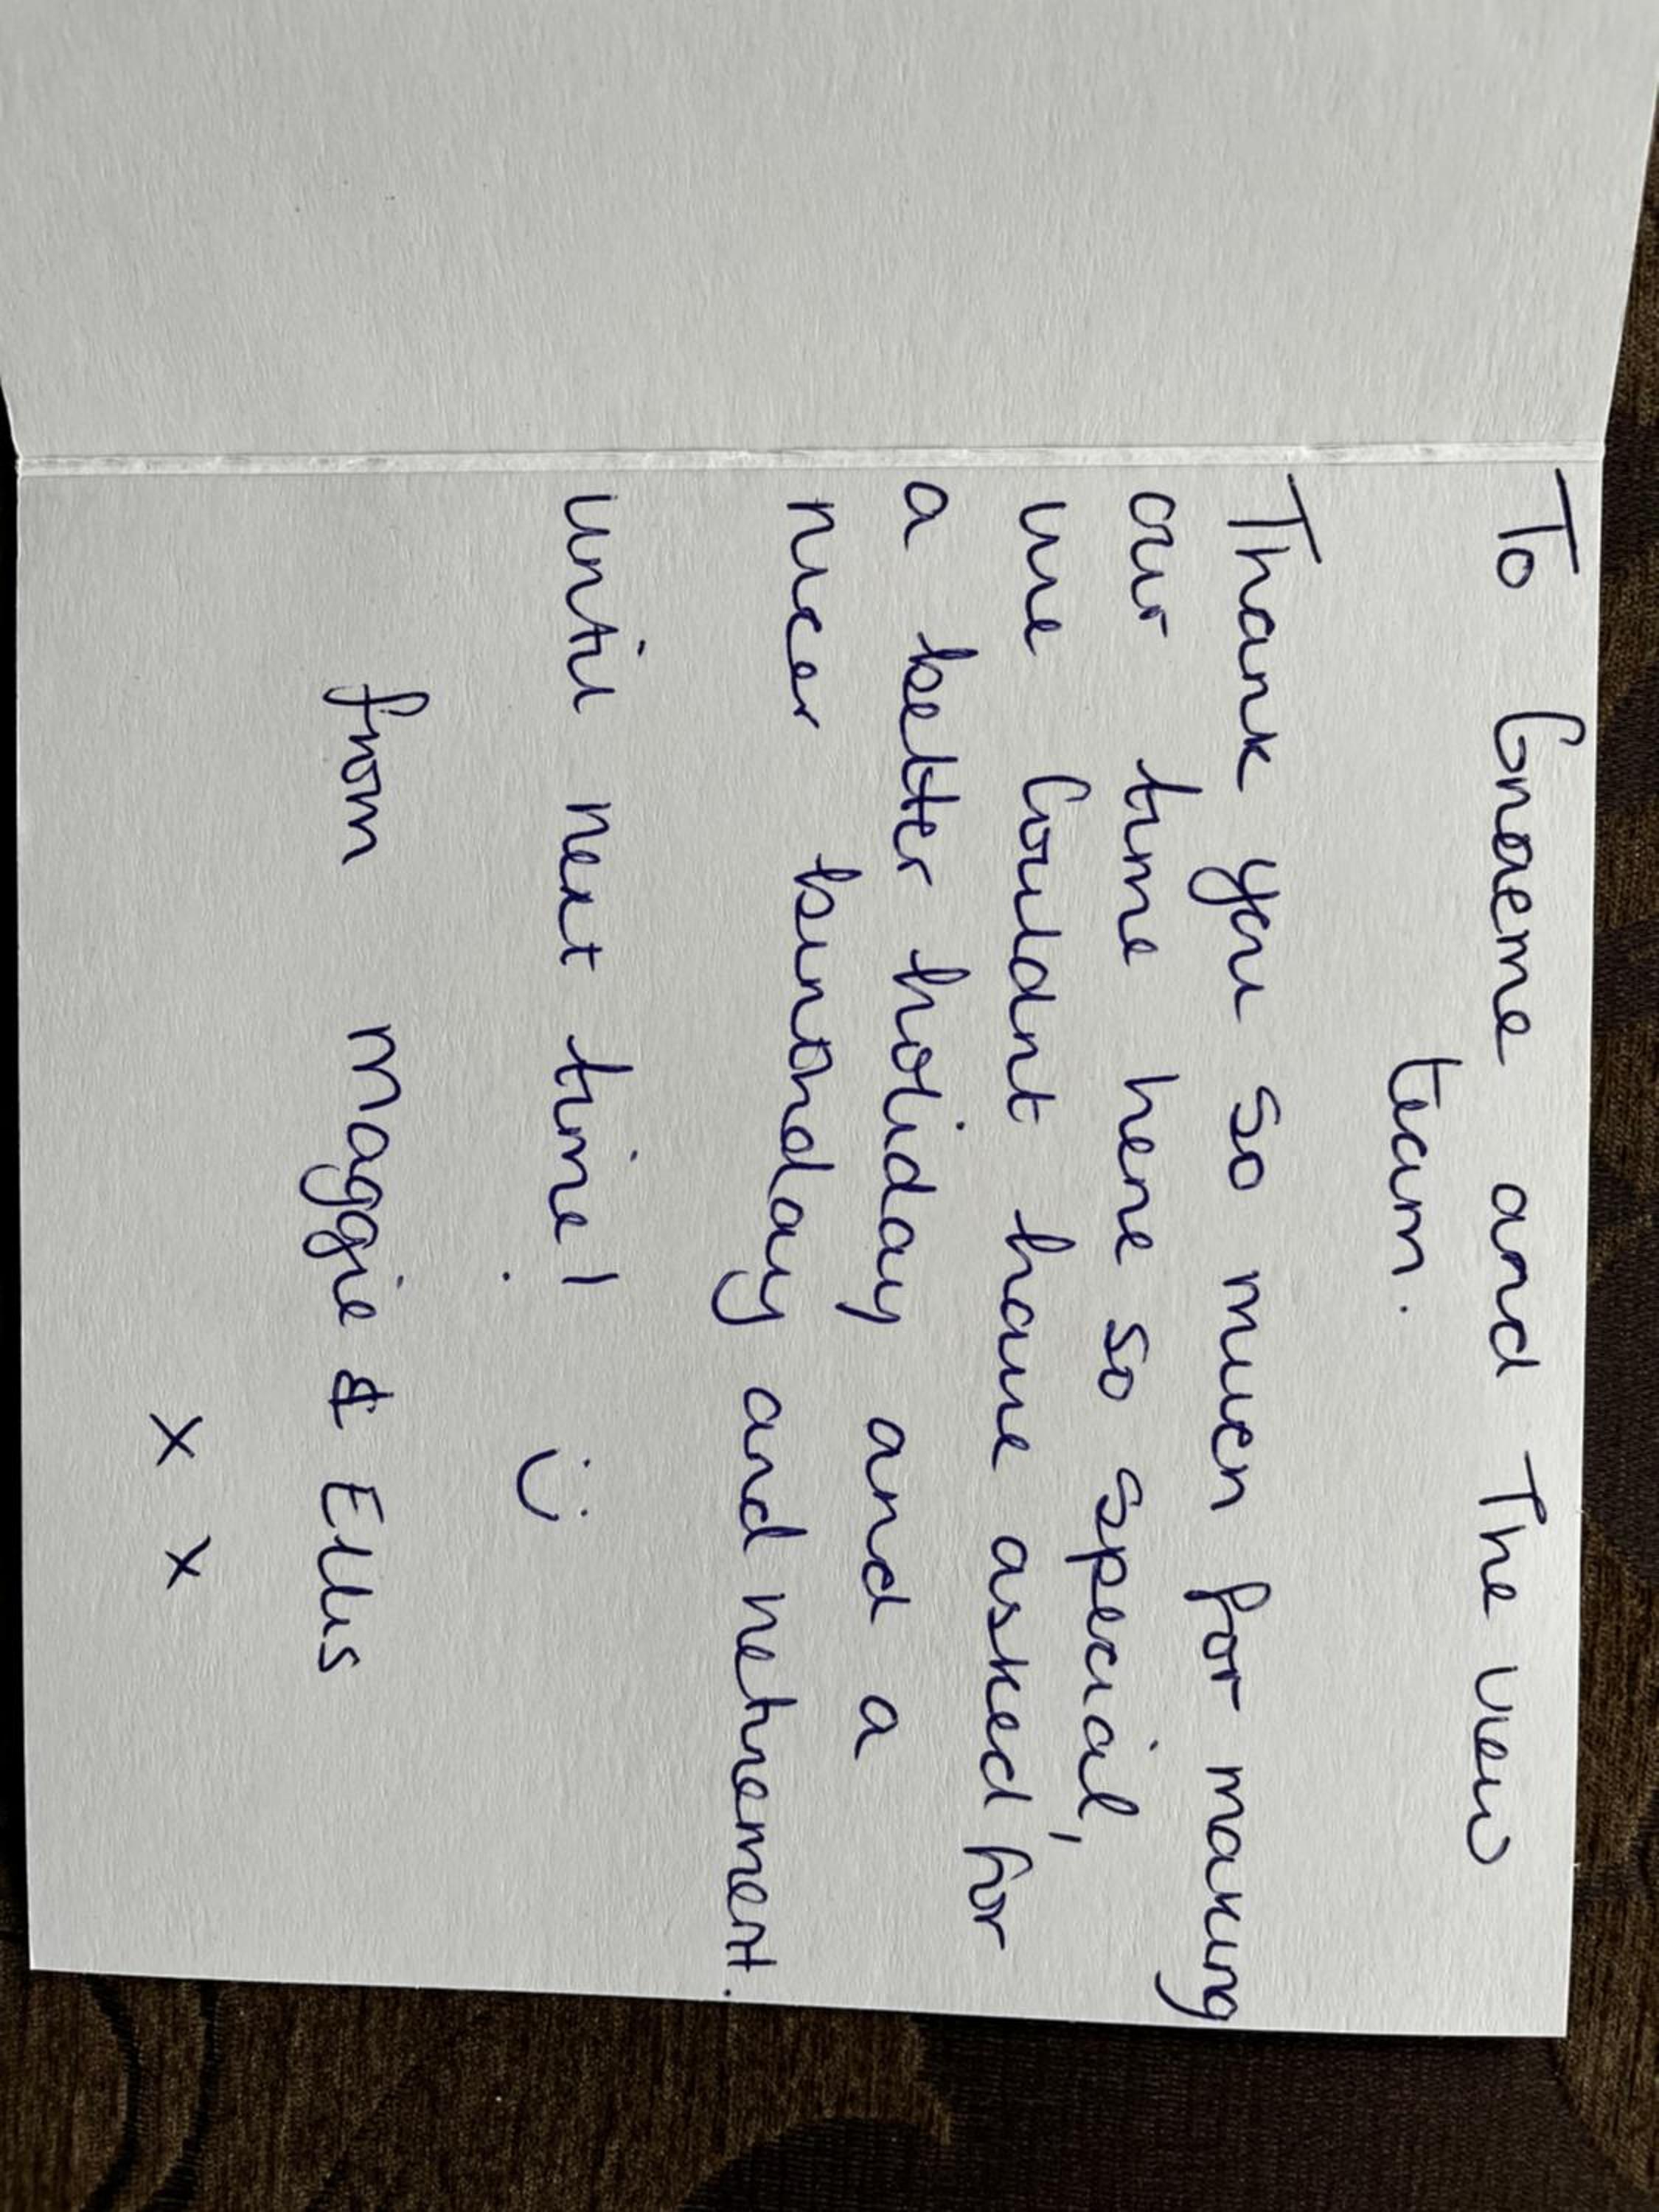 To Graeme and The view
team.
Thank you so much for making
our time here so special,
we couldnt have asked for
a better holiday and a
nicer birthday and retirement.
until next time! :)
from Maggie & Ellis
x x